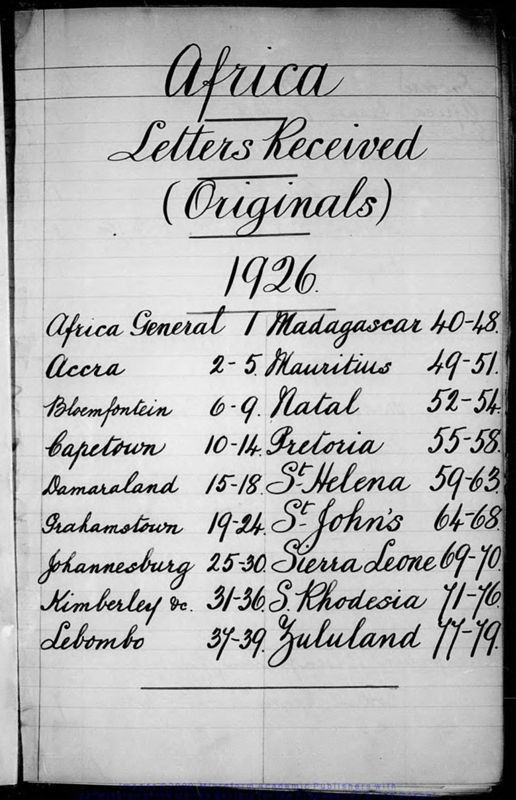 Africa
Letters Received
(Originals)
1926.
Africa General 1 Madagascar 40-48.
Accra 2-5. Mauritius 49-51.
Bloemfontein 6-9. Natal 52-54.
Capetown 10-14. Pretoria 55-58.
Damaraland 15-18. St. Helena 59-63.
Grahamstown 19-24. St. John's 64-68.
Johannesburg 25-30. Sierra Leone 69-70.
Kimberley &c. 31-36. S. Rhodesia 71-76.
Lebombo 37-39. Zululand 77-79.
Academic Publishers with